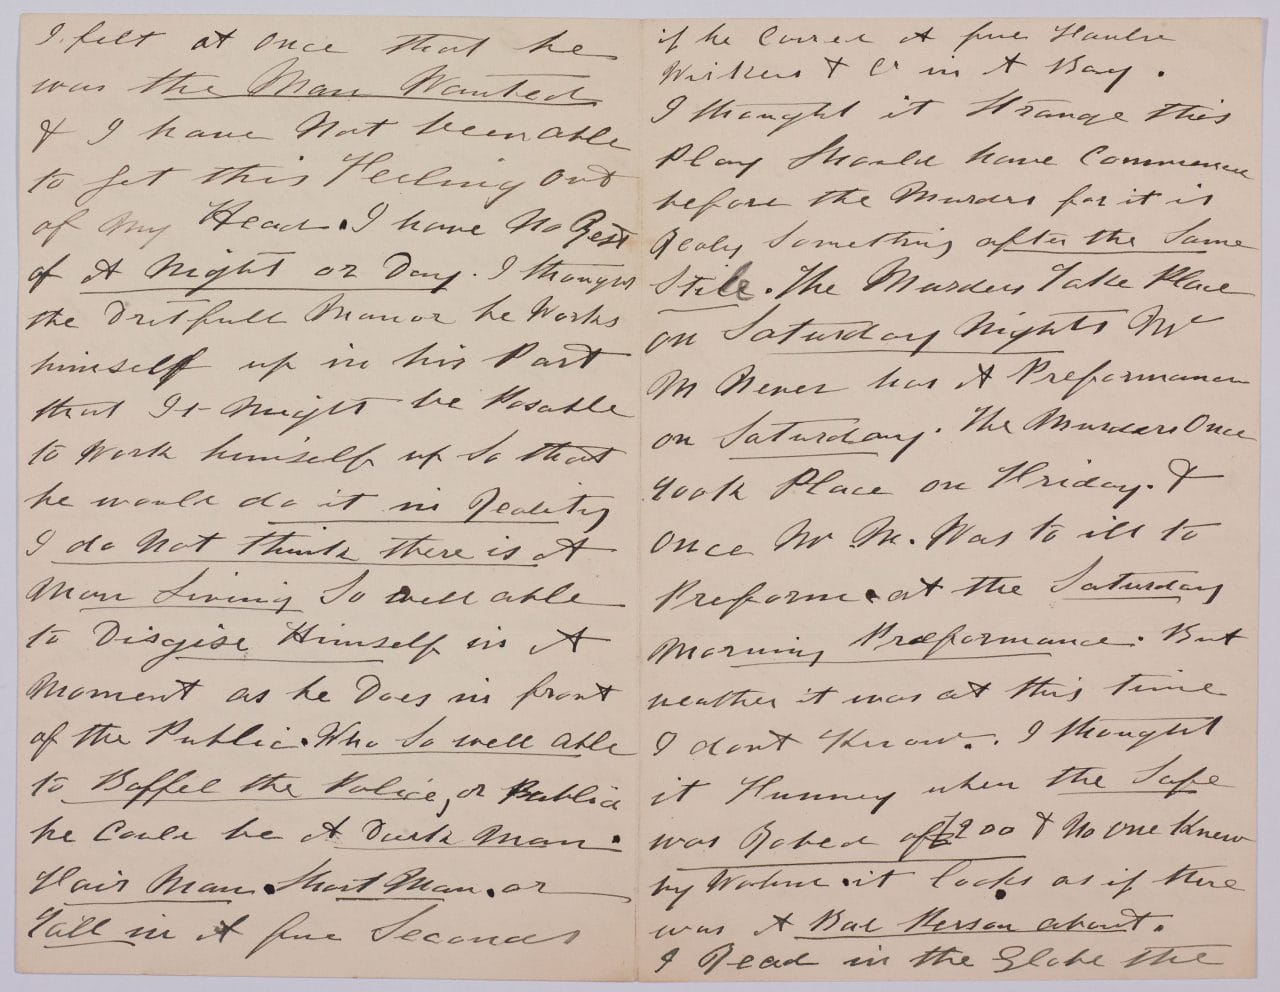 I felt at once that he
was the Man Wanted
& I have Not been able
to get this Feeling Out
of my Head. I have No Rest
of A Night or Day. I thought
the Dritfull Manor he Works
himself up in his Part
that It Might be Posable
to Work himself up So that
he would do it in Reality
I do Not think there is A
Man Living So well able
to Disgise Himself in A
Moment as he Does in front
of the Public. Who So well able
to Baffel the Police, or Public
he Could be A Dark Man.
Fair Man. Short Man. or
Tall in A five Seconds
if he Carred A five Haulse
Wiskers & Cr in A Bag.
I thought it Strange this
Play Should have Commenced
before the Murders for it is
Realy Something after the Same
Stile. The Murders Take Place
on Saturday Nights Mr
M Never has A Preformance
on Saturday. The Murders Once
took Place on Friday. &
Once Mr M. Was to ill to
Preform. at the Saturday
Morning Preformance. But
neather it was at this time
I dont Know. I thought
it Funney when the Safe
was Robed of £200 & No one Knew
by Wohm. it looks as if there
was A Bad Person about.
I Read in the Globe the